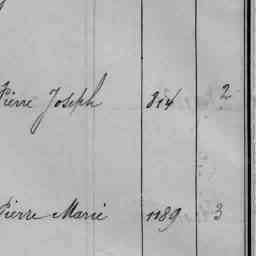 Pierre Joseph 314 2
Pierre Marie 1189 3